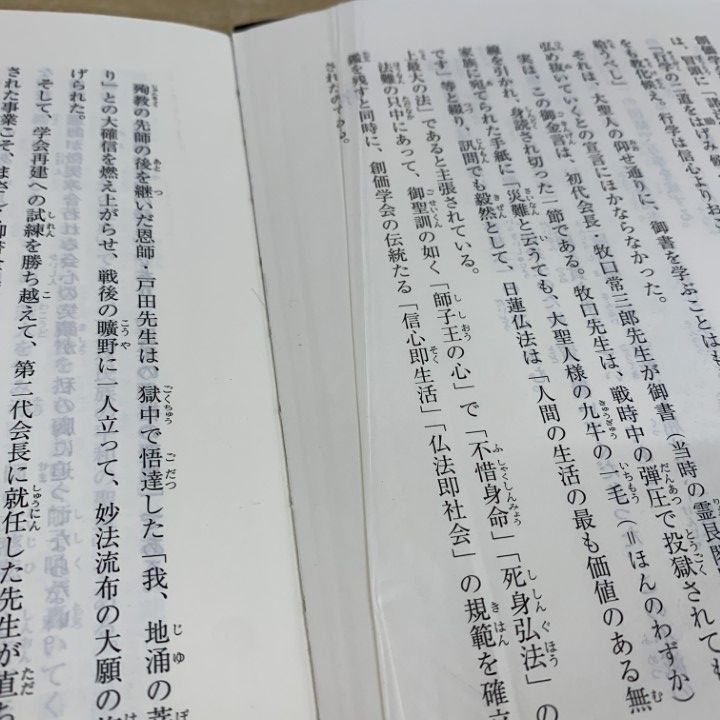 創価学
は、冒頭に「
「行学の二道をはげみ候
をも教化候え。行学は信心よりおこ
給うべし」
それは、大聖人の仰せ通りに、御書を学ぶことは
弘め抜いていくとの宣言にほかならなかった。
実は、この御金言は、初代会長・牧口常三郎先生が御書（当時の霊艮閣
線を引かれ、身読され切った一節である。牧口先生は、戦時中の弾圧で投獄されても
家族に宛てられた手紙に「災難と云うても、大聖人様の九牛の一毛（＝ほんのわずか）
です」等と綴り、訊問でも毅然として、日蓮仏法は「人間の生活の最も価値のある無
上最大の法」であると主張されている。
法難の只中にあって、御聖訓の如く「師子王の心」で「不惜身命」「死身弘法」の
鑑を残すと同時に、創価学会の伝統たる「信心即生活」「仏法即社会」の規範を確立
されたのである。
殉教の先師の後を継いだ恩師・戸田先生は、獄中で悟達した「我、地涌の菩
り」との大確信を燃え上がらせ、戦後の曠野に一人立って、妙法流布の大願の
げられた。
そして、学会再建への試練を勝ち越えて、第二代会長に就任した先生が直ち
された事業こそ、まさ